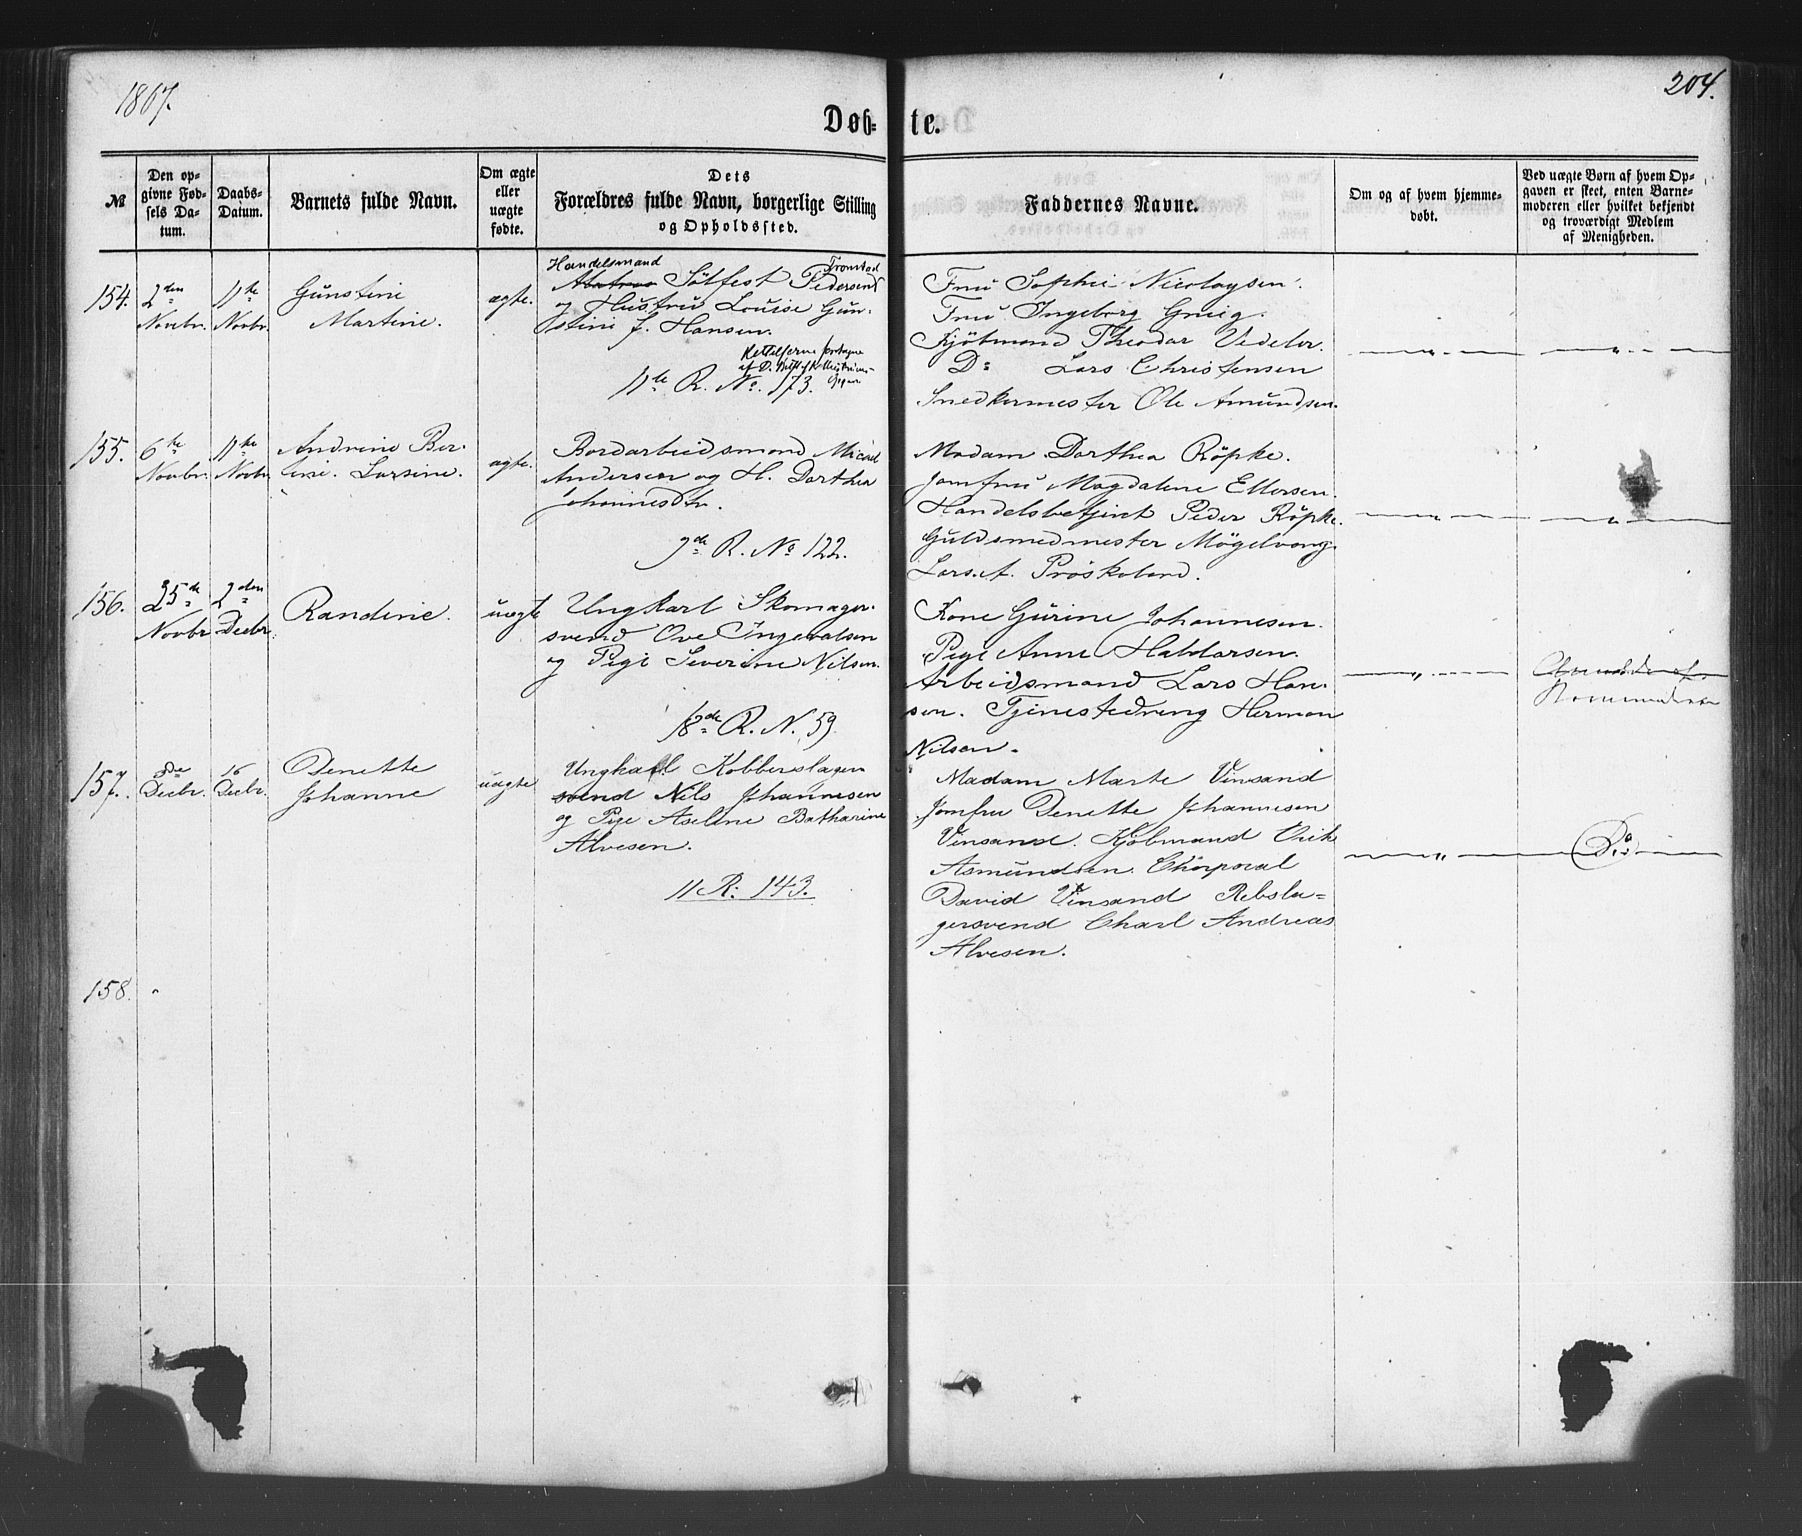 1867.
204.
Døb-
te.
№
Den op-
givne Fød-
sels Da-
tum.
Daabs-
Datum.
Barnets fulde Navn.
Om ægte
eller
uægte
fødte.
Dets
Forældres fulde Navn, borgerlige Stilling
og Opholdssted.
Faddernes Navne.
Om og af hvem hjemme-
døbt.
Ved uægte Børn af hvem Op-
gaven er skeet, enten Barne-
moderen eller hvilket bekjendt
og troværdigt Medlem
af Menigheden.
154.
2den
Novbr.
11te
Novbr.
Gunstine
Martine.
ægte.
Handelsmand Tronstad
Sølfest Pedersen
og Hustru Louise Gun-
stine f. Hansen.
Rettelserne foretagne
11te R. No. 173.
Fru Sophie Nicolaysen.
Fru Ingeborg Grieg.
Kjøbmand Theodor Vedeler.
Do Lars Christensen
Snedkermester Ole Amundsen.
155.
6te
Novbr.
11te
Novbr.
Andrine Ber-
tine. Larsine.
ægte.
Bordarbeidsmand Micael
Andersen og H. Dorthea
Johannesdtr.
9de R. No 122.
Madam Dorthea Röpke.
Jomfru Magdalene Ellersen.
Handelsbetjent Peder Röpke.
Guldsmedmester Møgelvang.
156.
25de
Novbr.
2den
Decbr.
Randine.
uægte
Ungkarl Skomager-
svend Ove Ingevalsen
og Pige Severine Nilsen.
18de R. N. 59.
Kone Gurine Johannesen.
Pige Anne Haldorsen.
Arbeidsmand Lars Han-
sen. Tjenestedreng Herman
Nilsen.
157.
3de
Decbr.
16
Decbr.
Denette
Johanne
uægte
Ungkarl Kobberslager
svend Nils Johannesen
og Pige Aseline Catharine
Alvesen.
11 R: 143.
Madam Marte Vinsand
Jomfru Denette Johannesen
Vinsand. Kjøbmand Erik
Asmundsen. Chorporal
David Vinsand Rebsla-
gersvend Charl Andreas
Alvesen.
Do
158.